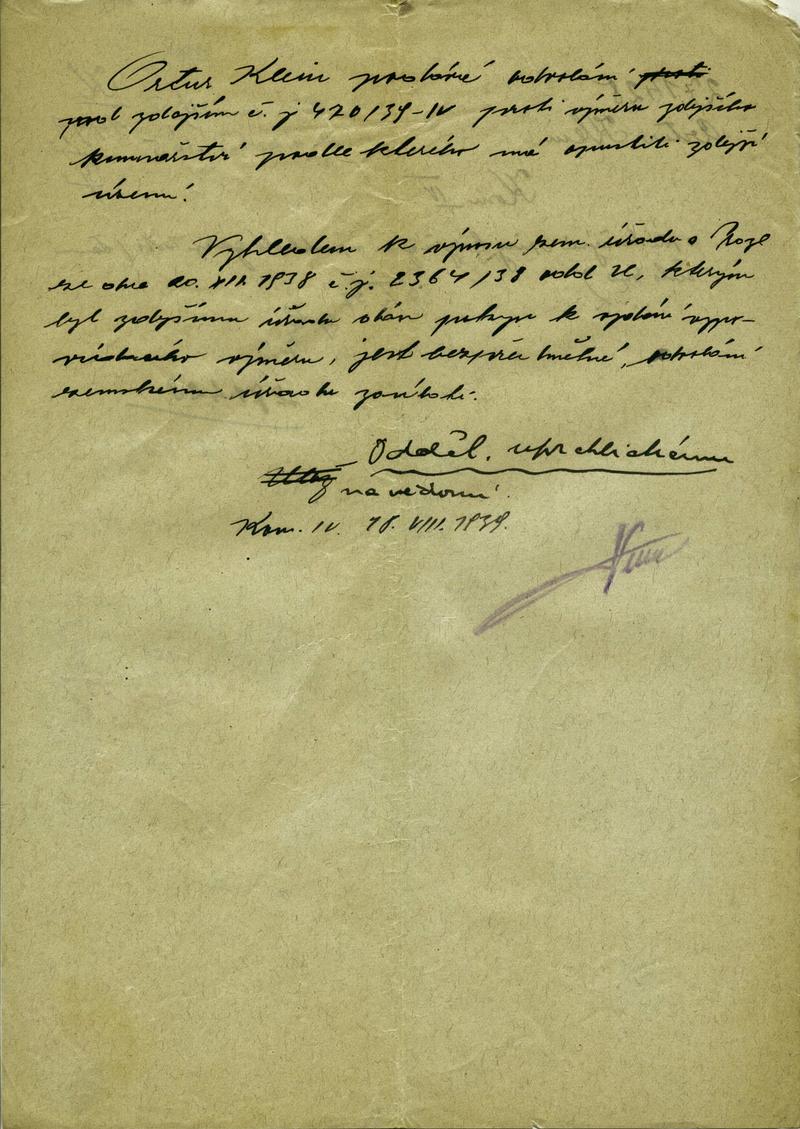 Artur Klein podává odvolání proti
pod zdejším č. j 420/39-IV proti výměru zdejšího
komisařství podle kterého má opustiti zdejší
území.
Vzhledem k výnosu zem. úřadu v Praze
ze dne 20. VII. 1938 č. j. 2364/38 odd 2c, kterým
byl zdejšímu úřadu dán pokyn k vydání vypo-
vídacího výměru, jest bezpředmětné, odvolání
zemskému úřadu zasílati.
Odděl. uprchlickému
na vědomí.
Kom. IV. 18. VIII. 1939.